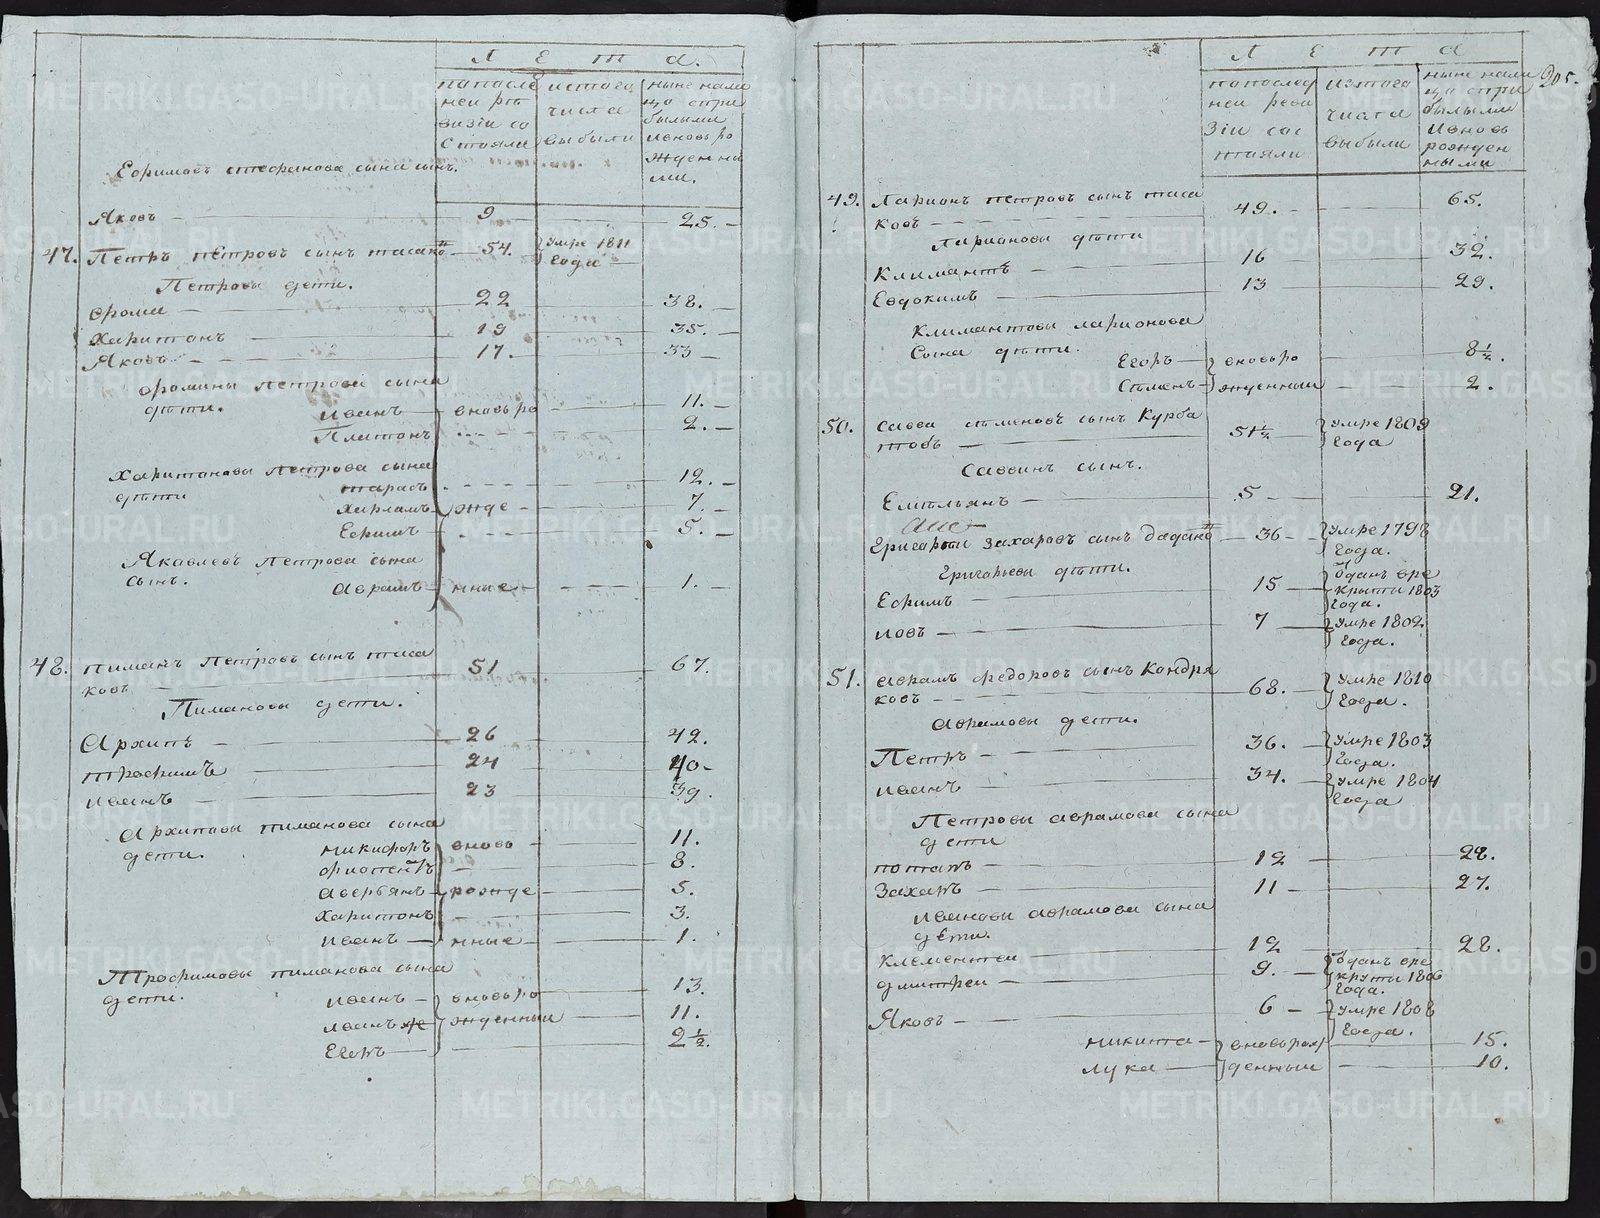 Л Е т а.
попосле
ней рѣ
визіи со
стояли
изтого
числа
выбыли
ныне нали
цо спри
былыми
ивновь ро
жденны
ми.
Ефимовъ стефанова сына сынъ.
Яковъ — 9 — 25.
47. Петръ петровъ сынъ писаковъ — 54. умре 1811
года
Петровы дети.
Фрома — 22 — 38.
Харитонъ — 19 — 35.
Яковъ — 17. — 33
Фромины петрова сына
дѣти. Иванъ — вновь ро — 11.
Платонъ — 2.
Харитоновы Петрова сына
дѣти Тарасъ — 12.
Харламъ — жде — 7.
Ефимъ — 5.
Яковлевъ Петрова сына
сынъ. Аврамъ — нные — 1.
48. пиманъ Петровъ сынъ писа
ковъ — 51 — 67.
Пимановы дети.
Архипъ — 26 — 42.
трофимъ — 24 — 40
иванъ — 23 — 39.
Архиповы пиманова сына
дети. никифоръ — вново — 11.
— 8.
аверьянъ — рожде — 5.
Харитонъ — 3.
иванъ — нные — 1.
Трофимовы пиманова сына
дети. иванъ — вновь ро — 13.
иванъ же — жденныи — 11.
Егоръ — 2½.
205.
Л Е т а
попослед
ней реви
зіи сос
тояли
изтого
числа
выбыли
ныне нали
цо спри
былыми
ивновь
рожден
ными
49. Ларионъ петровъ сынъ писа
ковъ — 49. — 65.
Ларионовы дѣти
Климантъ — 16 — 32.
Евдокимъ — 13 — 29.
Климантовы ларионова
сына дѣти. Егоръ — вновь ро — 8½.
Сѣменъ — жденныи — 2.
50. Савва сѣменовъ сынъ Курба
товъ — 51½ — умре 1809
года
Саввинъ сынъ.
Емѣльянъ — 5 — 21.
Григорьи захаровъ сынъ — 36 — умре 1798
года.
Григорьевы дѣти.
Ефимъ — 15 — отданъ вре
круты 1803
года.
иовъ — 7 — умре 1802
года.
51. аврамъ федоровъ сынъ Кондря
ковъ — 68. — умре 1810
года.
Аврамовы дети.
Петръ — 36. — умре 1803
года.
иванъ — 34. — умре 1804
года
Петровы аврамова сына
дети
потапъ — 12 — 28.
Захаръ — 11 — 27.
ивановы аврамова сына
дети.
Клементеи — 12 — 28.
дмитреи — 9. — отданъ вре
круты 1806
года.
Яковъ — 6 — умре 1808
года.
никита — вновь рож — 15.
лука — денныи — 10.
METRIKI.GASO-URAL.RU